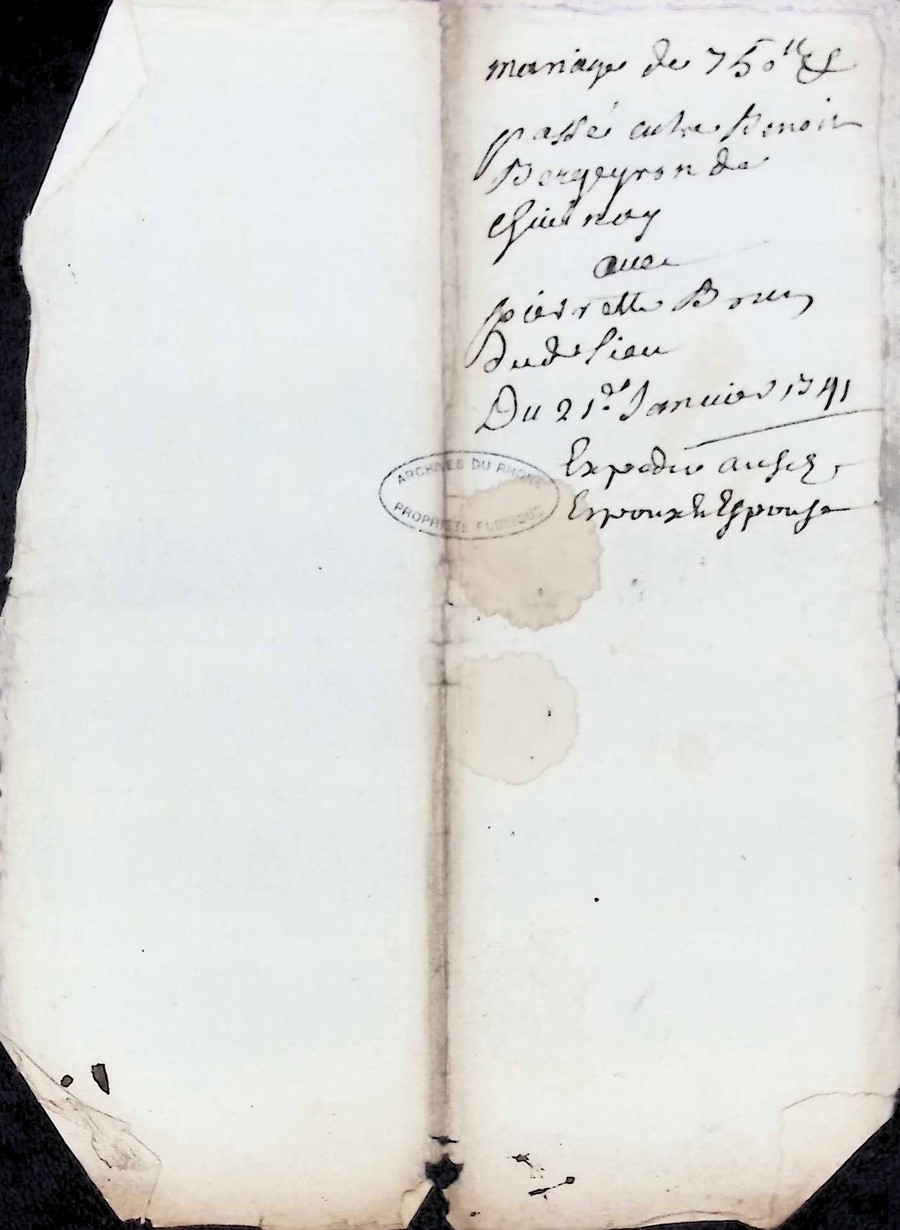 mariage de 750ᵗᵗ &
passé entre Benoit
Bergeyron de
avec
pierrette Brun
Dud lieu
Du 21ᵉ Janvier 1741
Expedie ausd
Espoux & Espouse
ARCHIVES DU RHONE
PROPRIETE PUBLIQUE